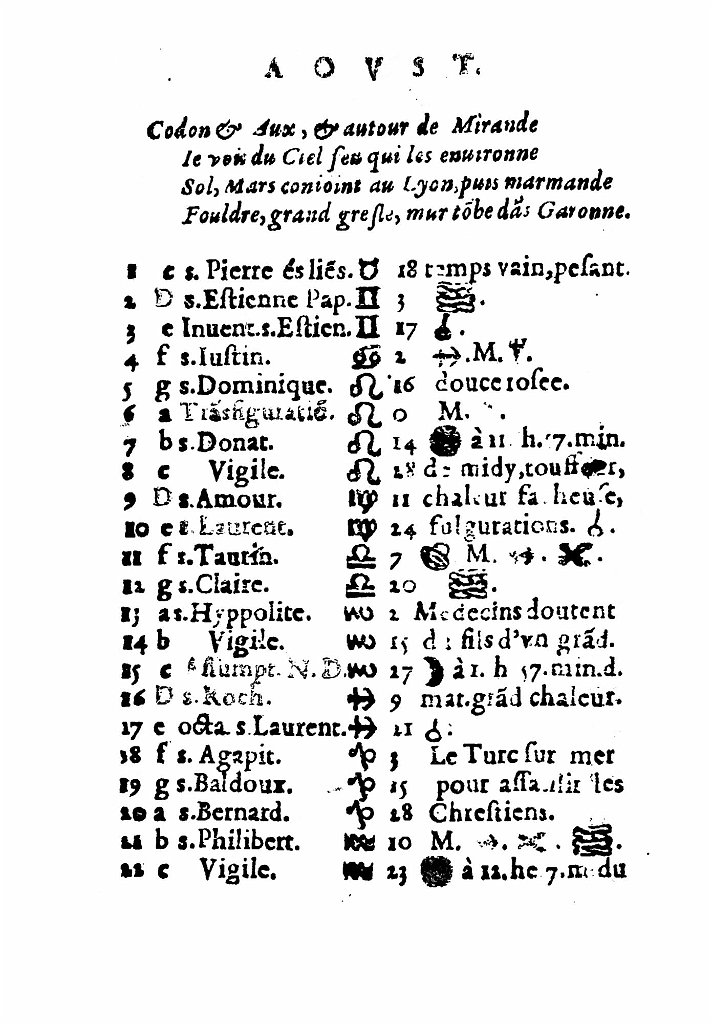 AOVST.
Codon & Aux, & autour de Mirande
Ie voi du Ciel feu qui les enuironne
Sol, Mars conioint au Lyon, puis marmande
Fouldre, grand gresle, mur tõbe dãs Garonne.
1 c s. Pierre és liés. ♉ 18 temps vain, pesant.
2 D s. Estienne Pap. ♊ 3
3 e Inuent. s. Estien. ♊ 17
4 f s. Iustin. ♋ 2 M.
5 g s. Dominique. ♌ 16 douce rosee.
6 a Trãsfiguratiõ. ♌ 0 M.
7 b s. Donat. ♌ 14 à 11 h. 7. min.
8 c Vigile. ♌ 28 de midy,
9 D s. Amour. ♍ 11 chaleur
10 e s. Laurent. ♍ 24 fulgurations.
11 f s. Taurin. ♎ 7 M.
12 g s. Claire. ♎ 20
13 a s. Hyppolite. ♏ 2 Medecins doutent
14 b Vigile. ♏ 15 d'vn grãd.
15 c Assumpt. N. D. ♏ 27 ☽ à 1. h 57. min. d.
16 D s. Roch. ♐ 9 mat. grãd chaleur.
17 e octa. s. Laurent. ♐ 21
18 f s. Agapit. ♑ 3 Le Turc sur mer
19 g s. Baldoux. ♑ 15 pour assaillir les
20 a s. Bernard. ♑ 28 Chrestiens.
21 b s. Philibert. ♒ 10 M.
22 c Vigile. ♒ 23 à 12. he 7. m du